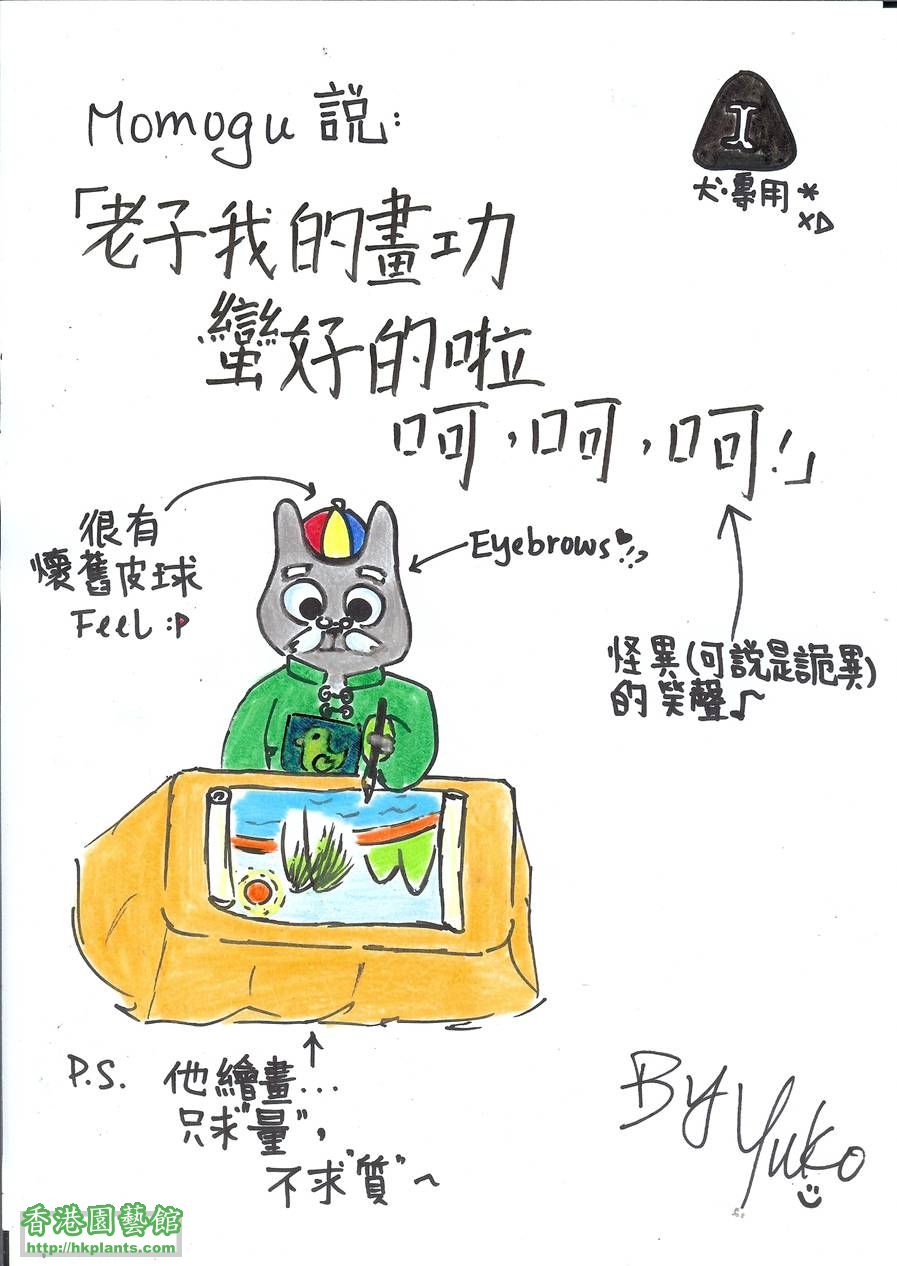 Momogu 説:
I
犬·專用*
XD
「老子我的畫功
蠻好的啦
呵,呵,呵!」
很有
懷舊皮球
Feel :P
Eyebrows
怪異(可説是詭異)
的笑聲♪
P.S. 他繪畫...
只求"量",
不求"質"~
By Yuko
香港園藝館
http://hkplants.com